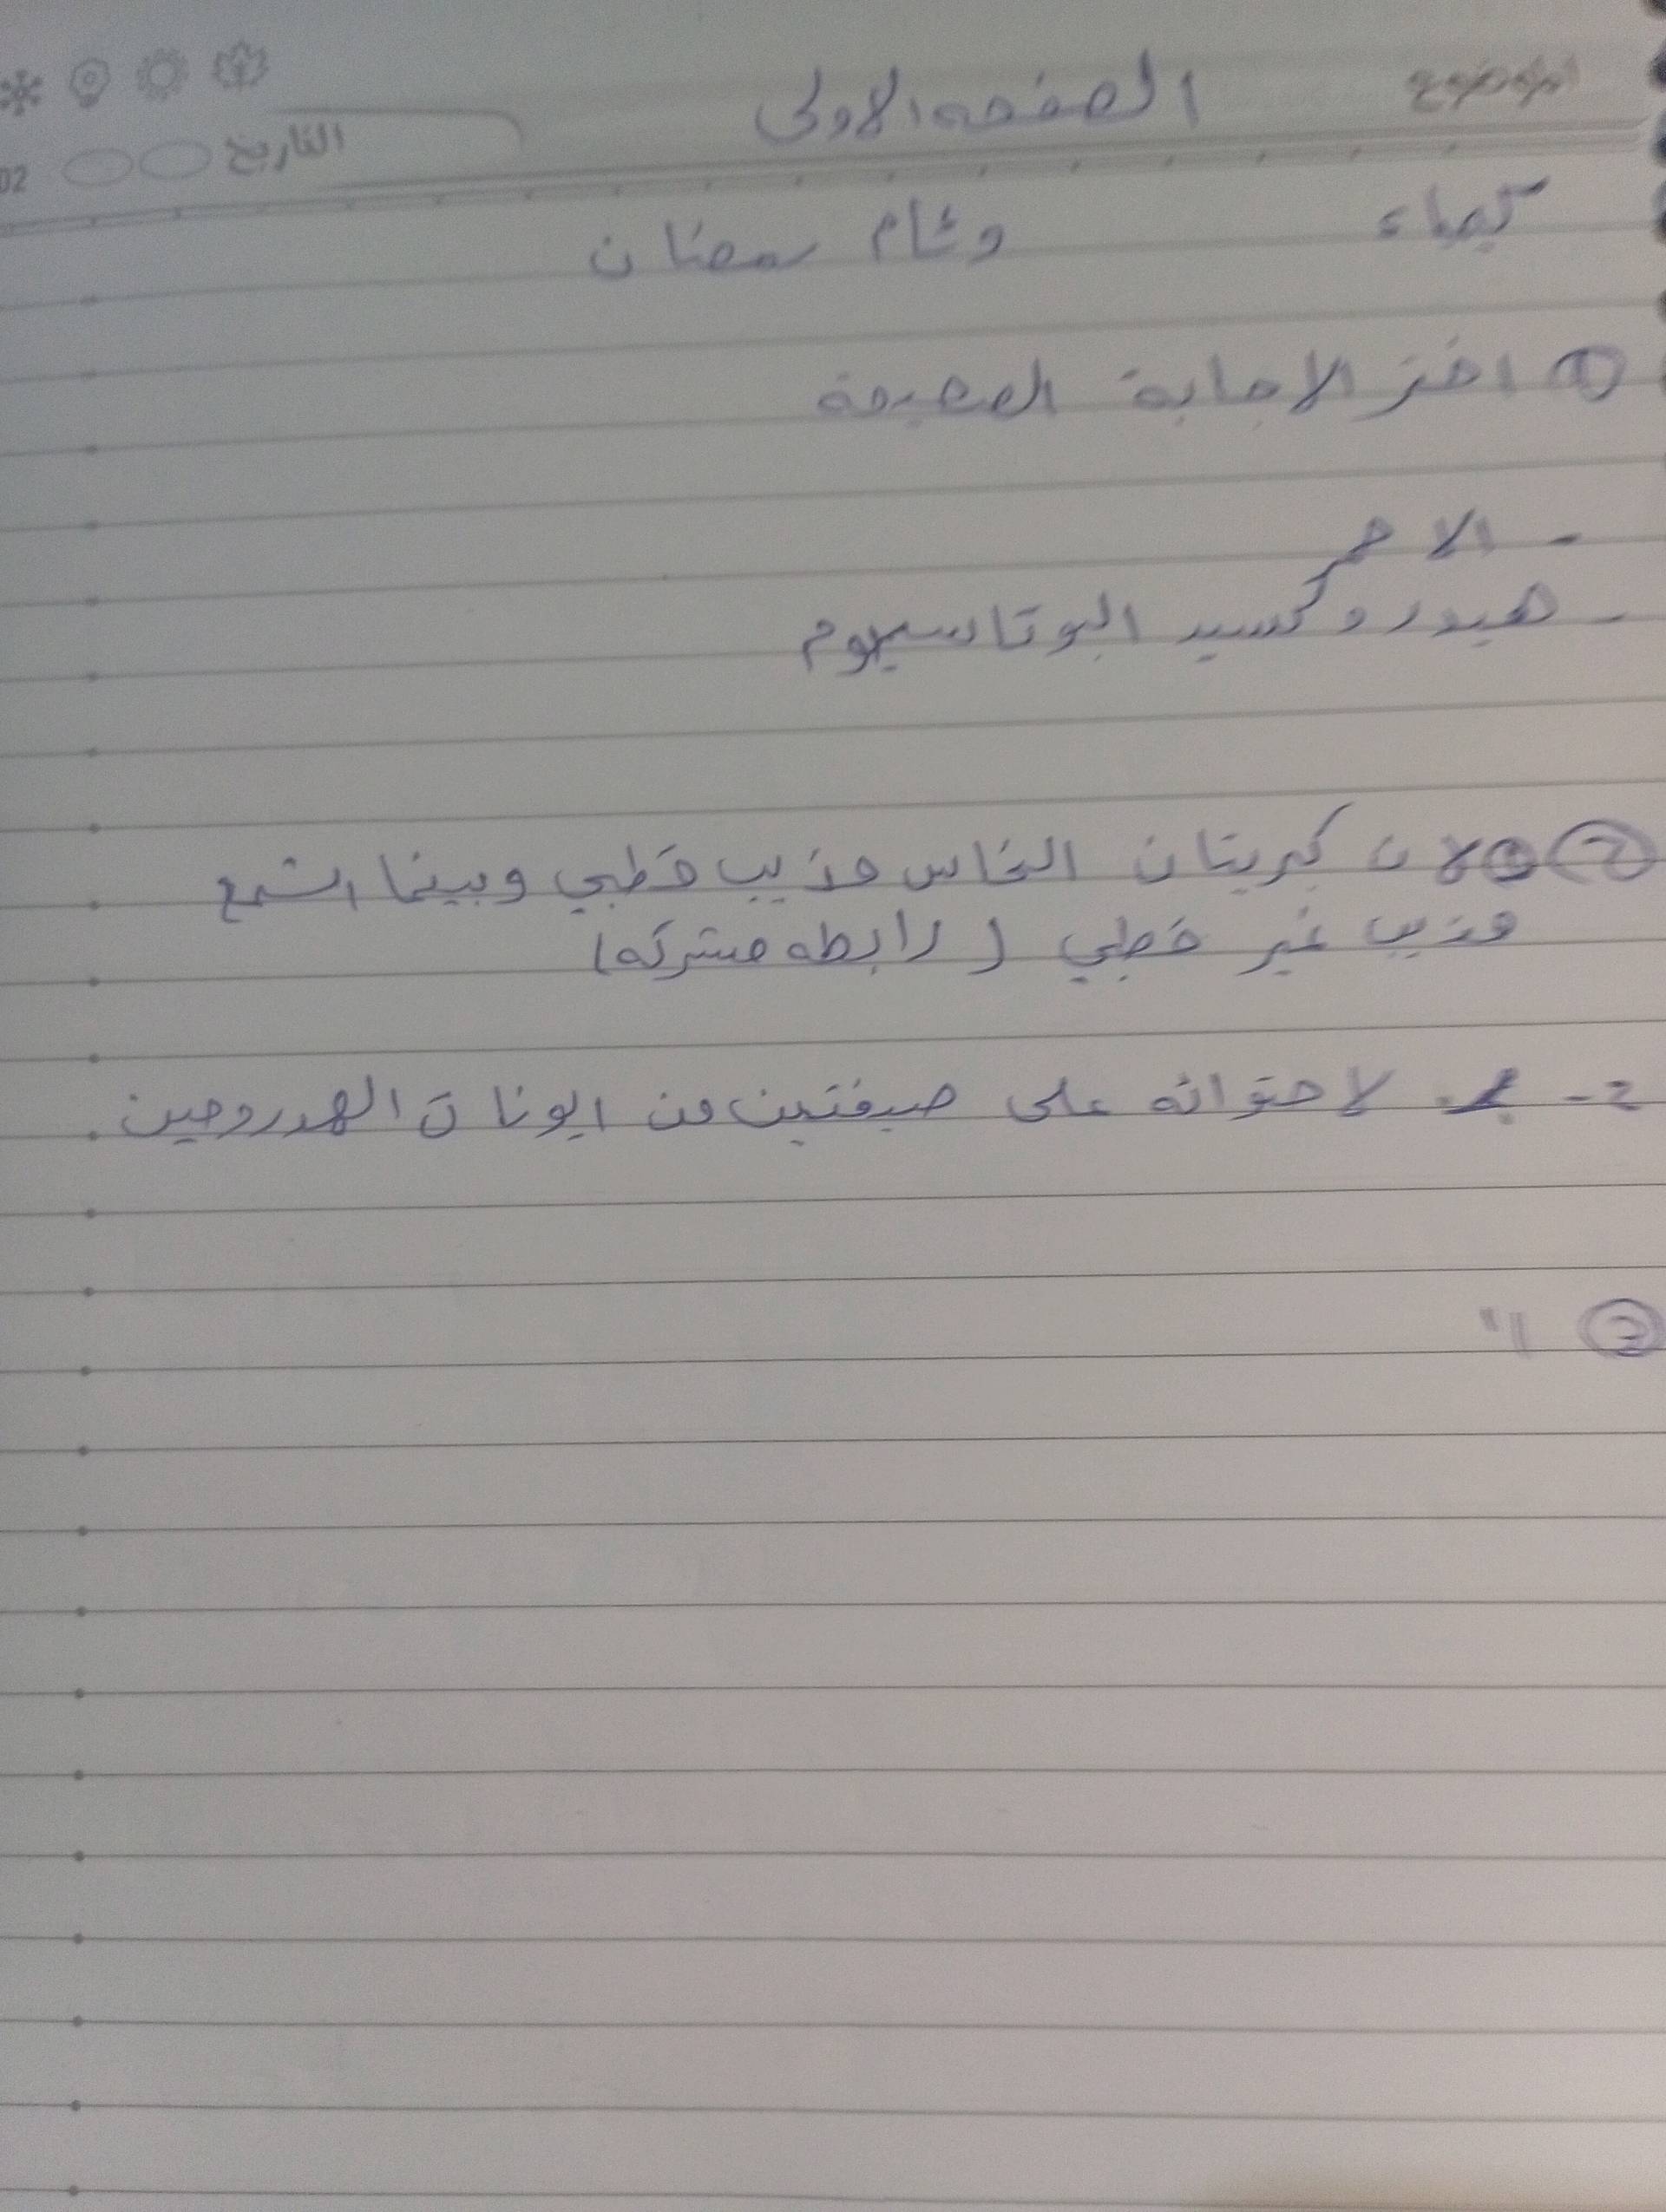 الموضوع
الصفحه الاولى
التاريخ
02
كيمياء
وئام رمضان
① اختر الاجابة الصحيحة
- الاحمر
- هيدروكسيد البوتاسيوم
② ① لان كبريتات النحاس مذيب قطبي وبينما الشمع
مذيب غير قطبي (رابطه مشتركه)
2- لاحتوائه على ضعفين من ايونات الهدروجين.
③ 1"